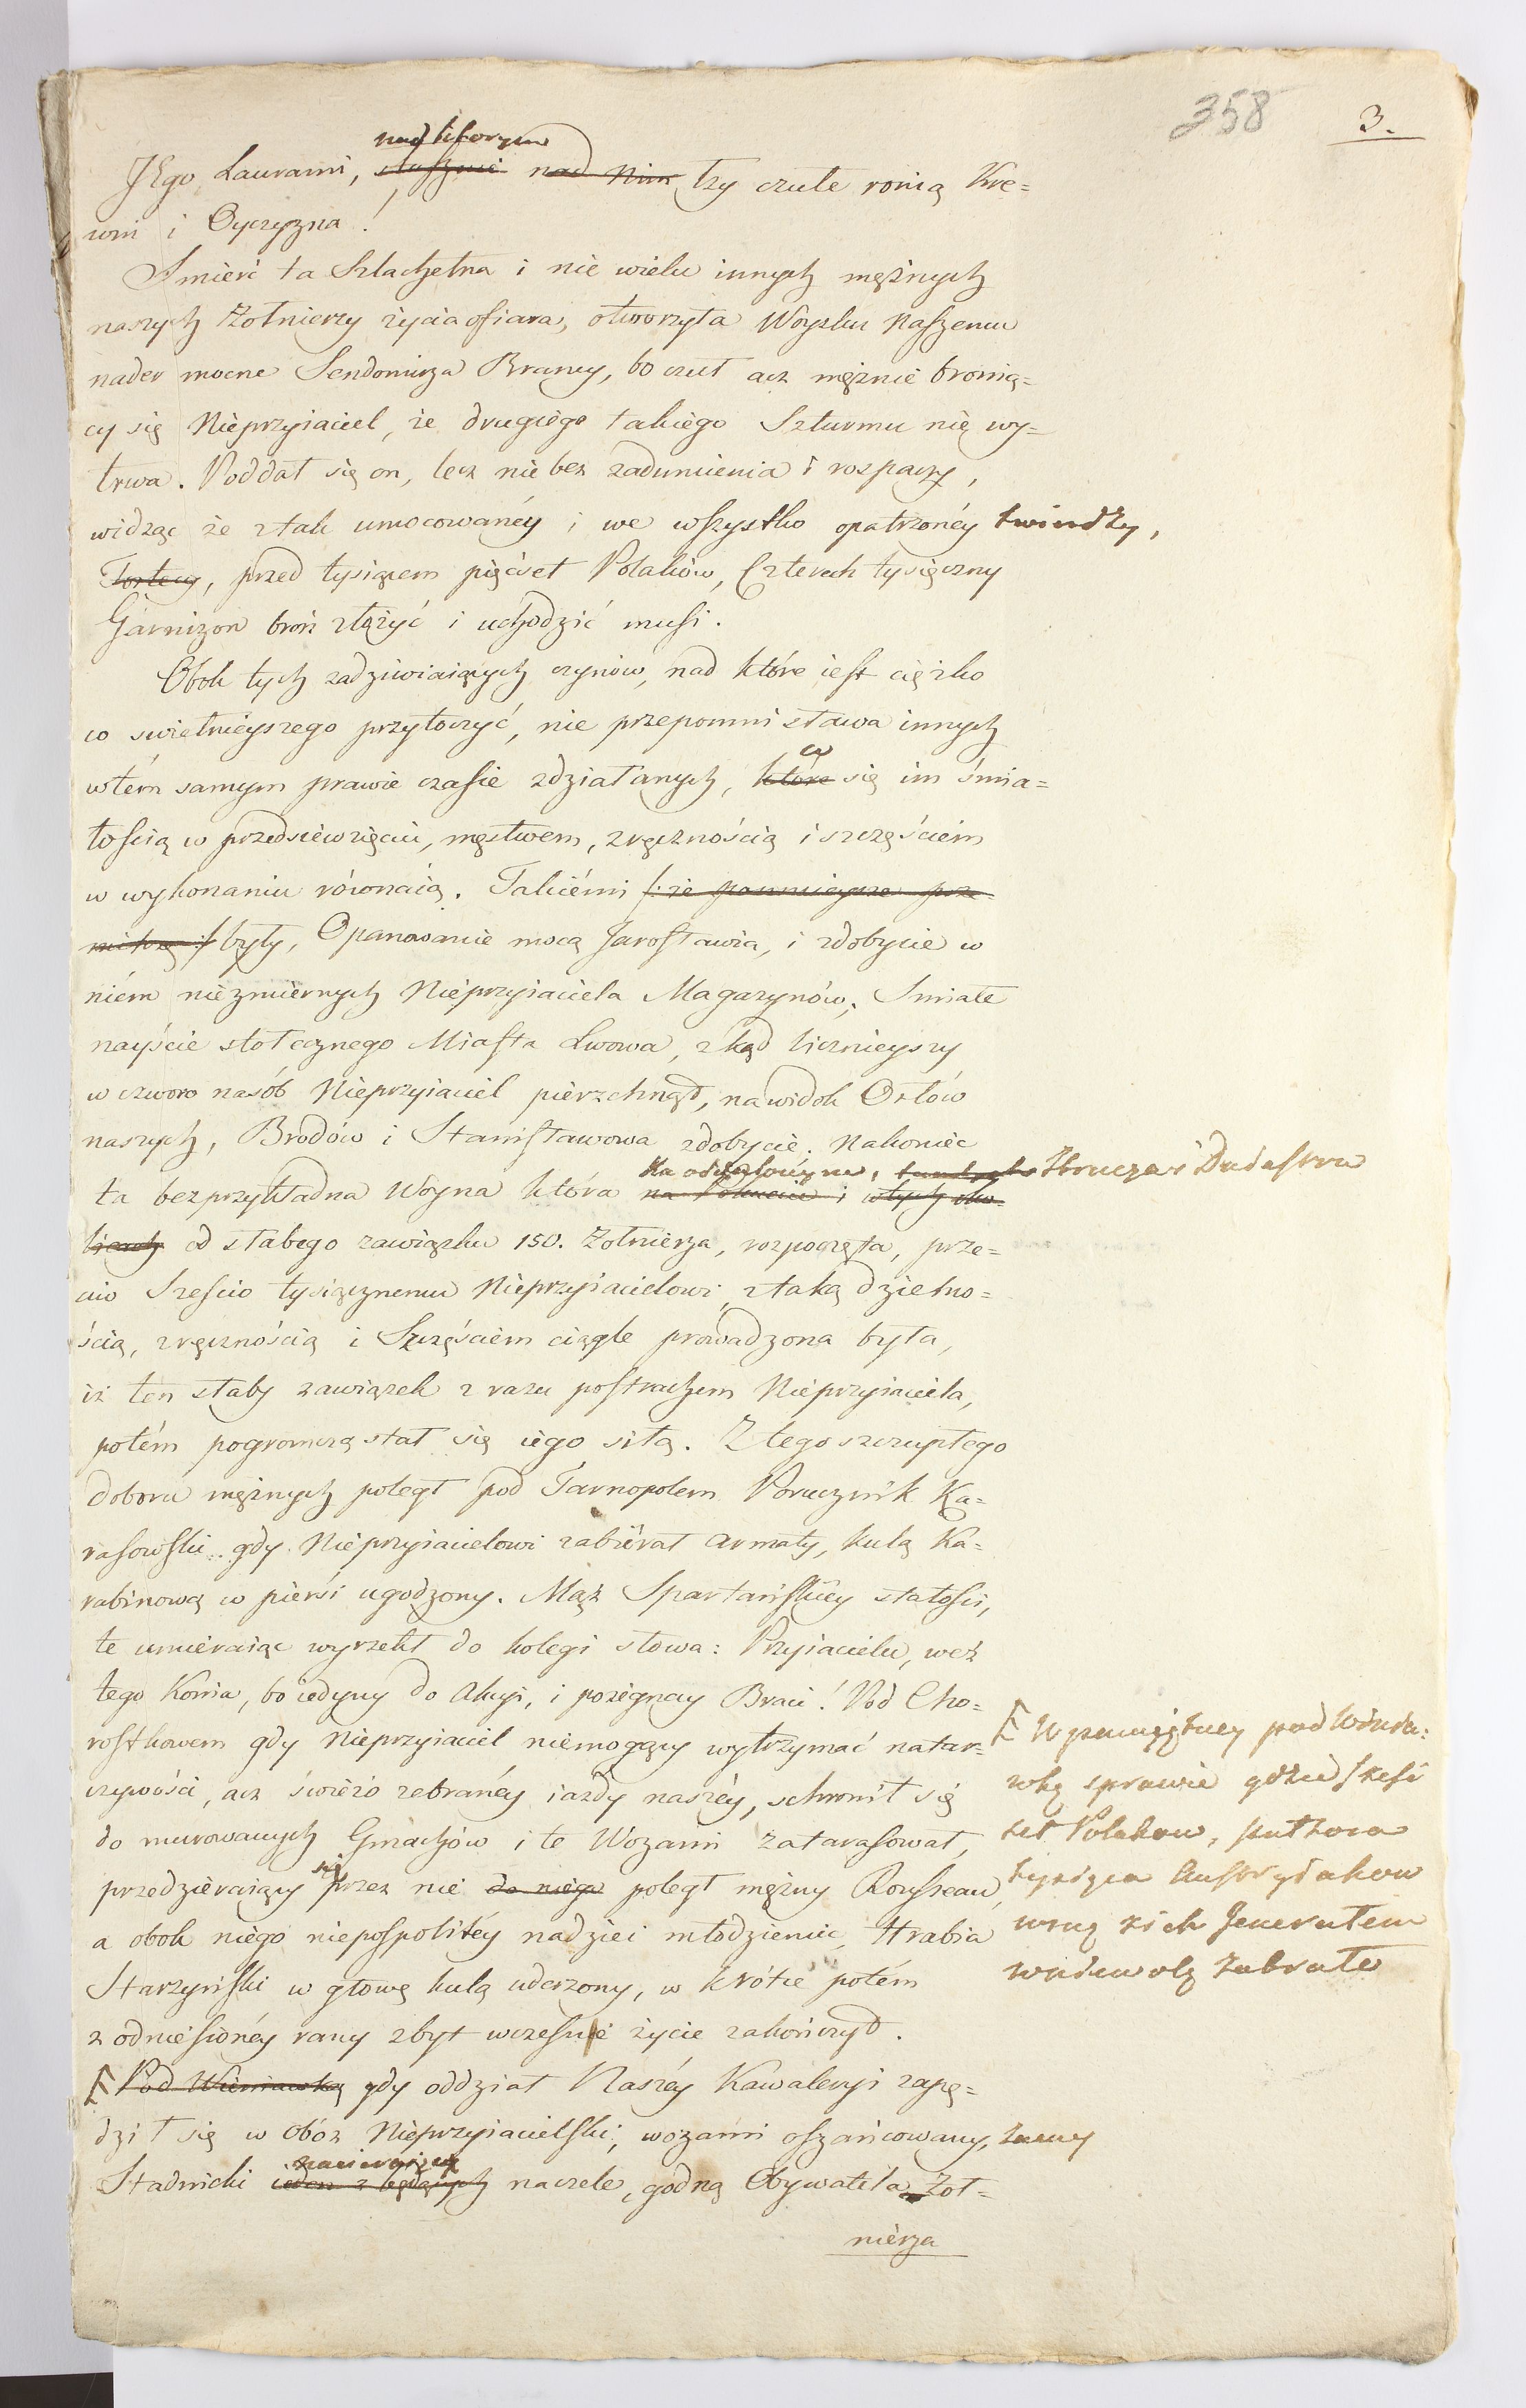 358
3.
nad ktorym
JEgo Laurami, słusznie nad Nim łzy czułe ronią Kre=
wni i Oyczyzna!
Smierć ta Szlachetna i nie wielu innych mężnych
naszych Żołnierzy życia ofiara, otworzyła Woysku Naszemu
nader mocne Sendomirza Bramy, bo czuł acz mężnie bronią=
cy się Nieprzyiaciel, że drugiego takiego Szturmu nie wy=
trwa. Poddał się on, lecz nie bez zadumienia i rozpaczy,
widząc że z tak umocowanéy i we wszystko opatrzonéy twierdzy,
Fortecy, przed tysiącem pięćset Polaków, Czterech tysięczny
Garnizon broń złożyć i uchodzić musi.
Obok tych zadziwiaiących czynów, nad które iest ciężko
co swietnieyszego przytoczyć, nie przepomni sława innych
w tém samym prawie czasie zdziałanych, które się im śmia=
co
łością w przedsiewzięciu, męstwem, zręcznością i szczęściem
w wykonaniu równaią. Takiémi /: że pomnieysze prze=
milczę :/ były, Opanowanie mocą Jarosławia, i zdobycie w
niém niezmiernych Nieprzyiaciela Magazynów, Smiałe
nayście stołecznego Miasta Lwowa, z kąd licznieyszy
w czworo nasób Nieprzyiaciel pierzchnął, na widok Orłów
naszych, Brodów i Stanisławowa zdobycie. Nakoniec
Zbrucza i Dniestru
ta bezprzykładna Woyna która na Pokuciu i w tych oko=
licach od słabego zawiązku 150. Żołnierza, rozpoczęta, prze=
ciw Sześcio tysiącznemu Nieprzyiacielowi, z taką dzielno=
ścią, zręcznością i Szczęściem ciągle prowadzona była,
iż ten słaby zawiązek z razu postrachem Nieprzyiaciela,
potém pogromcą stał się iego siłą. Z tego szczupłego
doboru mężnych poległ pod Tarnopolem Porucznik Ka=
rasowski gdy Nieprzyiacielowi zabiérał armaty, kulą Ka=
rabinową w piersi ugodzony. Mąż Spartańskiéy stałości,
te umieraiąc wyrzekł do kolegi słowa: Przyiacielu, weź
tego Konia, bo iedyny do Akcyi, i pożegnay Braci! Pod Cho=
rostkowem gdy Nieprzyiaciel niemogący wytrzymać natar=
czywości, acz świeżo zebranéy iazdy naszéy, schronił się
do murowanych Gmachów i te Wozami zatarasował,
przedzieraiący się przez nie do niego poległ mężny Rousseau,
a obok niego niepospolitéy nadziei młodzieniec, Hrabia
Starzyński w głowę kulą uderzony, w krótce potém
z odniesionéy rany zbyt wcześnie życie zakończył.
W pamiętney pod Winia=
wką sprawie gdzie sześć
set Polakow, pułtora
tysiąca Austryiakow
wraz z ich Jenerałem
w niewolą zabrało
Pod Wieniawką gdy oddział Naszéy Kawaleryi zapę=
dził się w obóz Nieprzyiacielski, wozami oszańcowany, zacny
nacieraiąc
Stadnicki ieden z będących na czele, godną Obywatela Żoł=
niérza